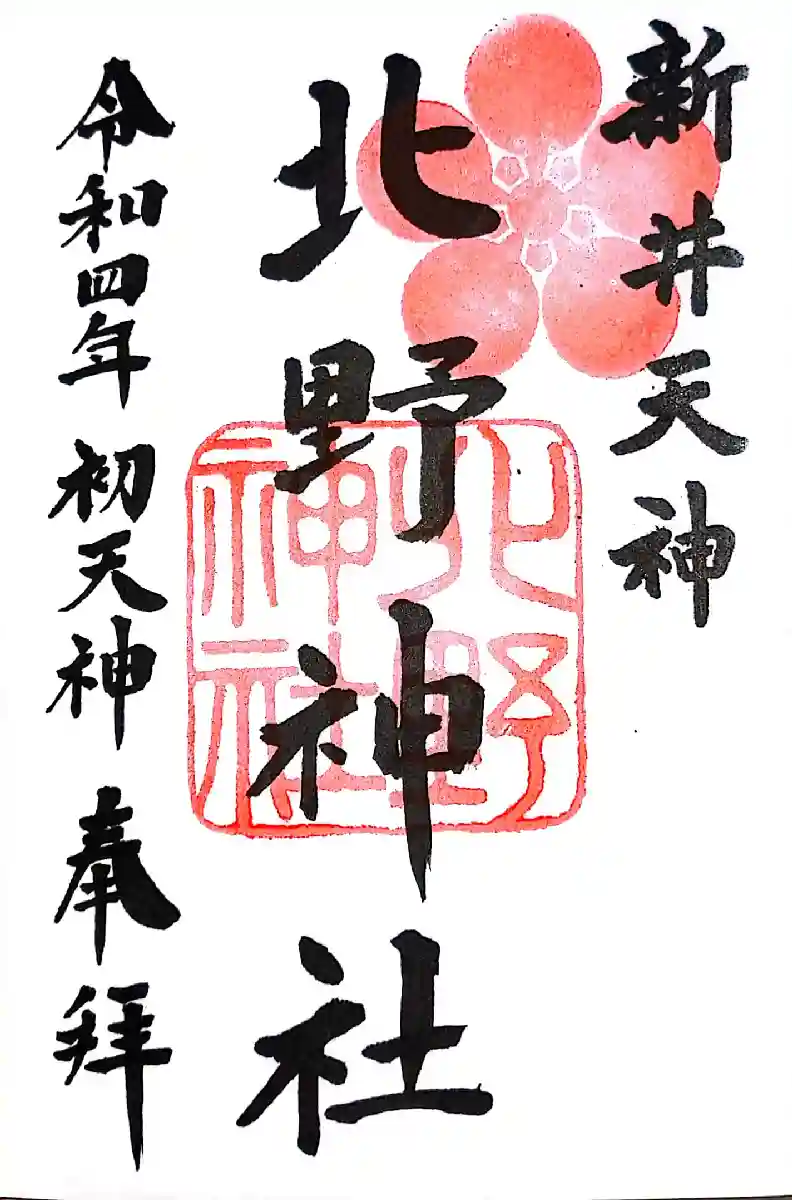 新井天神
北野神社
北野神社
令和四年 初天神 奉拝